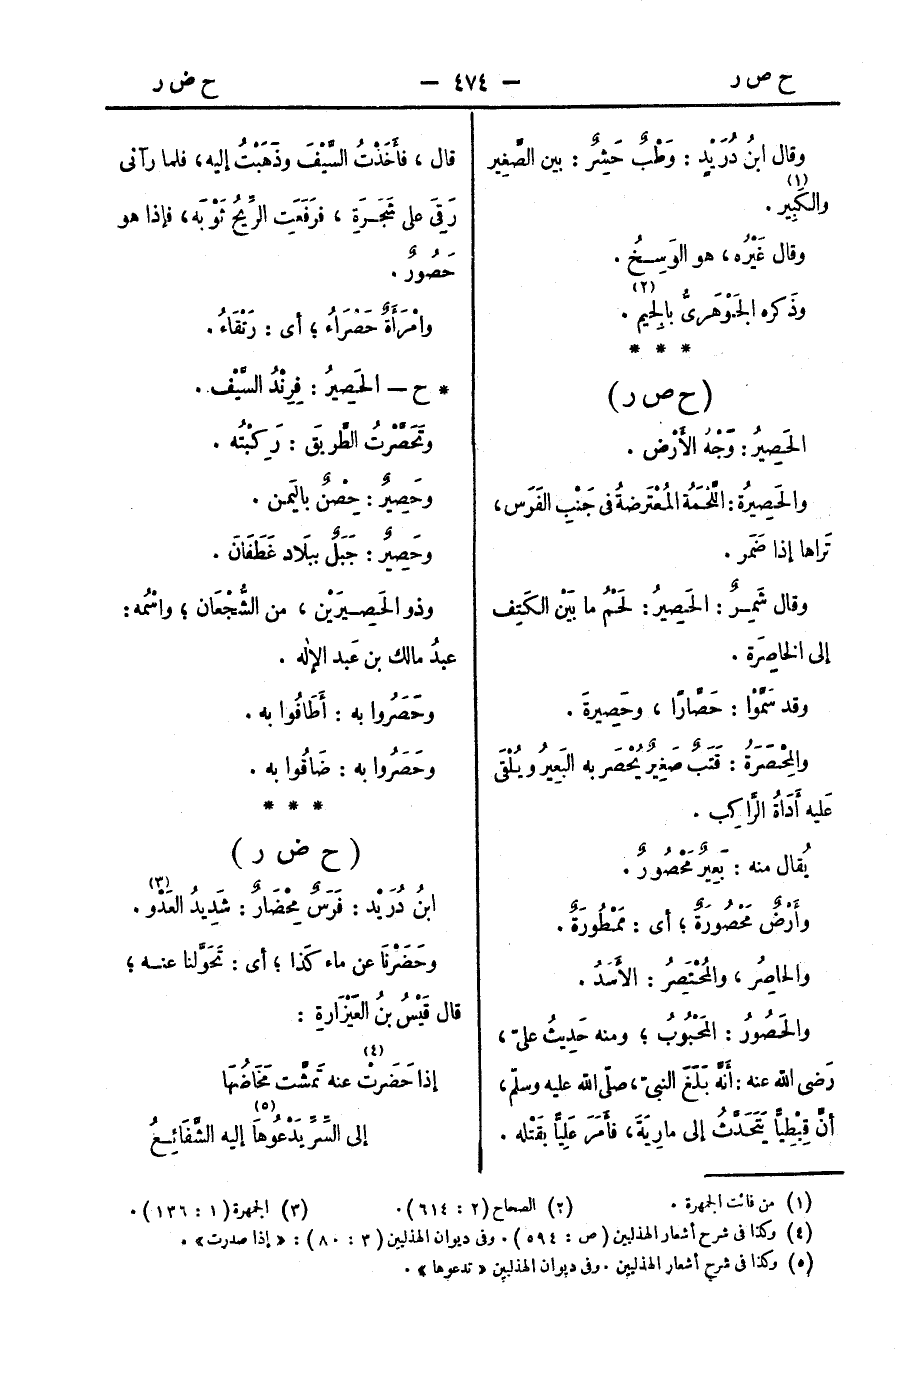 ح ص ر
— ٤٧٤ —
ح ض ر
وقال ابنُ دُرَيْدٍ : وَطْبٌ حَشِرٌ : بين الصَّغِير
والكَبِير (١) .
وقال غَيْرُه ، هو الوَسِخُ .
وذَكره الجَوْهَرىُّ بالِجيم (٢) .
* * *
( ح ص ر )
الحَصِيرُ : وَجْهُ الأَرْض .
والحَصِيرةُ : اللَّحْمَةُ المُعْتَرضةُ فى جَنْبِ الفَرَس ،
تَراها إذا ضَمَر .
وقال شَمِرٌ : الحَصِيرُ : لَحْمُ ما بَيْن الكَتِف
إلى الخاصِرَة .
وقد سَمَّوْا : حَصَّارًا ، وحَصِيرةَ .
والمِحْصَرَةُ : قَتَبٌ صَغِيرٌ يُحْصَر به البَعِيرُ ويُلْقَى
عَليه أَدَاةُ الرَّاكِب .
يُقال منه : بَعِيرٌ مَحْصُورٌ .
وأَرْضٌ مَحْصُورَةٌ ؛ أى : مَمْطُورَةٌ .
والحاصِرُ ، والمُحْتَصِرُ : الأَسَدُ .
والحَصُورُ : المَجْبُوبُ ؛ ومنه حَدِيثُ علىّ ،
رَضى الله عنه : أنَّه بَلَغَ النبىّ ، صلّى الله عليه وسلّم ،
أنَّ قِبْطِيًّا يَتَحَدَّثُ إلى مارِيَةَ ، فأَمَرَ عَلِيًّا بقَتْله .
قال ، فأَخَذْتُ السَّيْفَ وذَهَبْتُ إليه ، فلما رآنى
رَقِىَ على شَجَرَةٍ ، فرَفَعَت الرِّيحُ ثَوْبَه ، فإذا هو
حَصُورٌ .
وامْرَأَةٌ حَصْرَاءُ ؛ أى : رَتْقَاءُ .
* ح — الحَصِيرُ : فِرِنْدُ السَّيْف .
وتَحَصَّرْتُ الطَّرِيقَ : رَكِبْتُه .
وحَصِيرٌ : حِصْنٌ باليَمن .
وحَصِيرٌ : جَبَلٌ ببلَاد غَطَفَانَ .
وذو الحَصِيرَيْن ، من الشُّجْعَان ؛ واسْمُه :
عبدُ مالك بن عَبد الإله .
وحَصَرُوا به : أَطَافُوا به .
وحَصَرُوا به : ضَافُوا به .
* * *
( ح ض ر )
ابنُ دُرَيْد : فَرَسٌ مِحْضَارٌ : شَدِيدُ العَدْو (٣) .
وحَضَرْنَا عن ماء كَذا ؛ أى : تَحَوَّلنا عنه ؛
قال قَيْسُ بنُ العَيْزَارةِ :
إذا حَضَرتْ عنه تَمشَّت مَخَاضُهَا (٤)
إلى السِّرِّ يَدْعُوهَا (٥) إليه الشَّفَائِعُ
(١) من فائت الجمهرة . (٢) الصحاح (٢ : ٦١٤) . (٣) الجمهرة (١ : ١٣٦) .
(٤) وكذا فى شرح أشعار الهذليين (ص : ٥٩٤) . وفى ديوان الهذليين (٣ : ٨٠) : « إذا صدرت » .
(٥) وكذا فى شرح أشعار الهذليين . وفى ديوان الهذليين « تدعوها » .